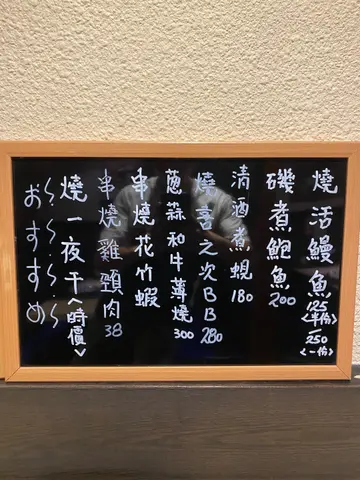 燒活鰻魚
125
<半份>
250
<一份>
磯煮鮑魚
200
清酒煮蜆
180
燒喜之次BB
280
蔥蒜和牛薄燒
300
串燒花竹蝦
串燒雞頸肉
38
燒一夜干<時價>
おすすめ